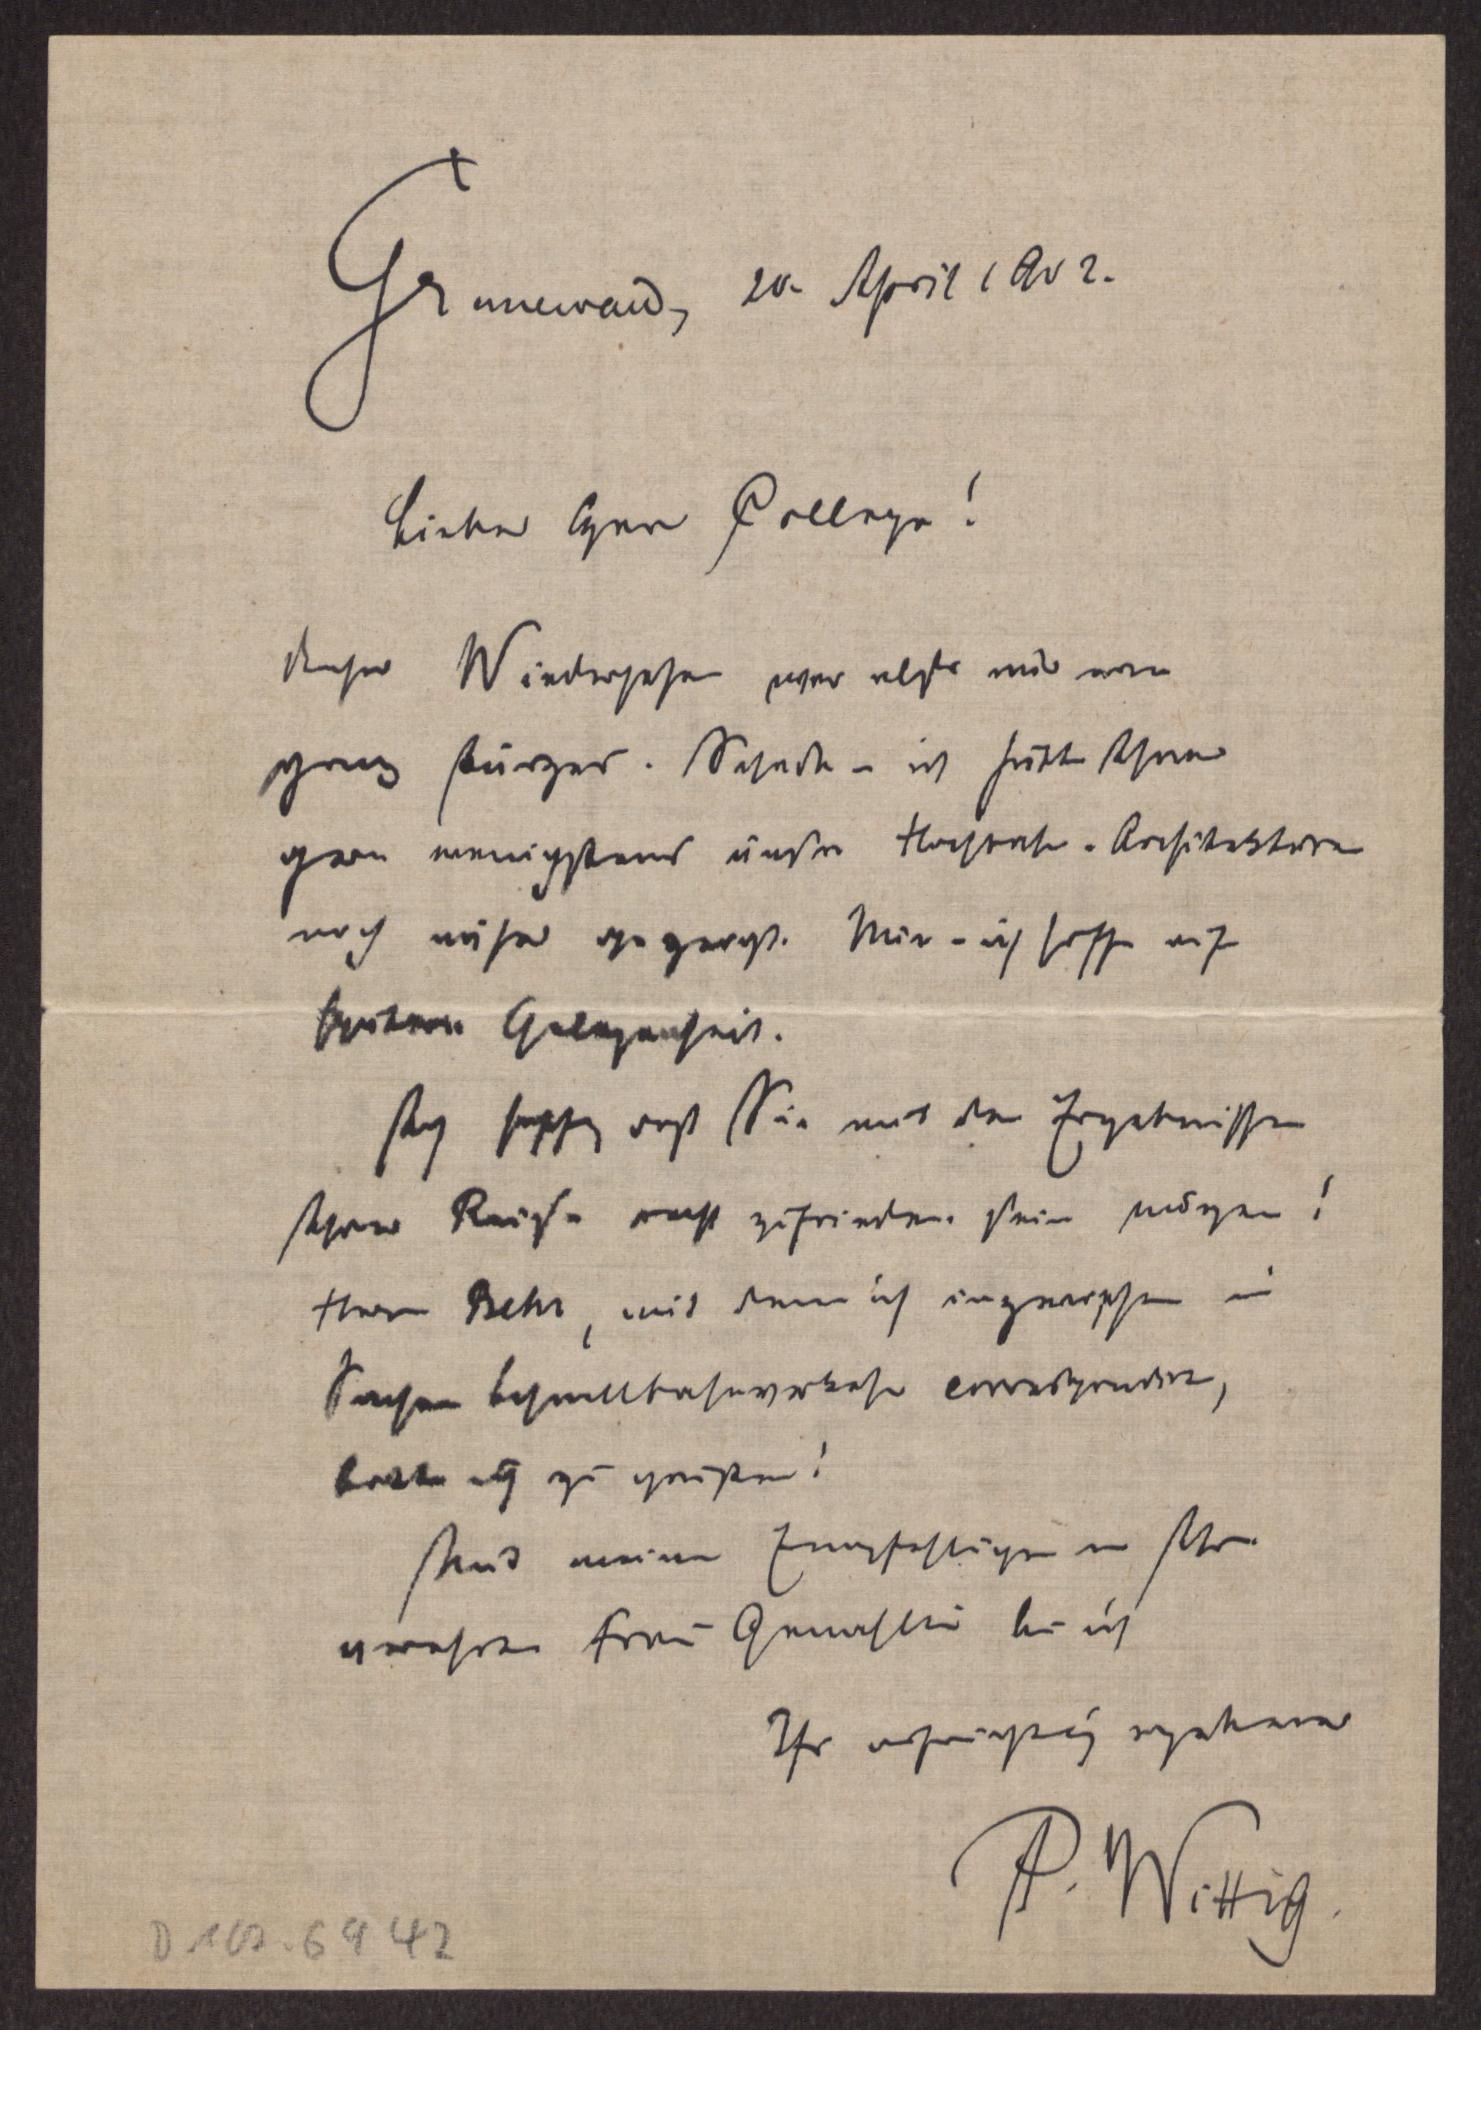 Grunewald, 20. April 1902.
Lieber Herr College!
Unser Wiedersehen war also nur ein
ganz kurzes. Schade - ich hätte Ihnen
gern wenigstens unsre Hochbahn-Architekturen
noch näher gezeigt. Nun - ich hoffe auf
spätere Gelegenheit.
Ich hoffe, daß Sie mit den Ergebnissen
Ihrer Reise recht zufrieden sein mögen!
Herrn Behr, mit dem ich inzwischen in
Sachen Schnellbahnverkehr correspondirt,
bitte ich zu grüßen!
Und meinen Empfehlungen an Ihre
verehrte Frau Gemahlin bin ich
Ihr aufrichtig ergebener
P. Wittig.
D 167.6942